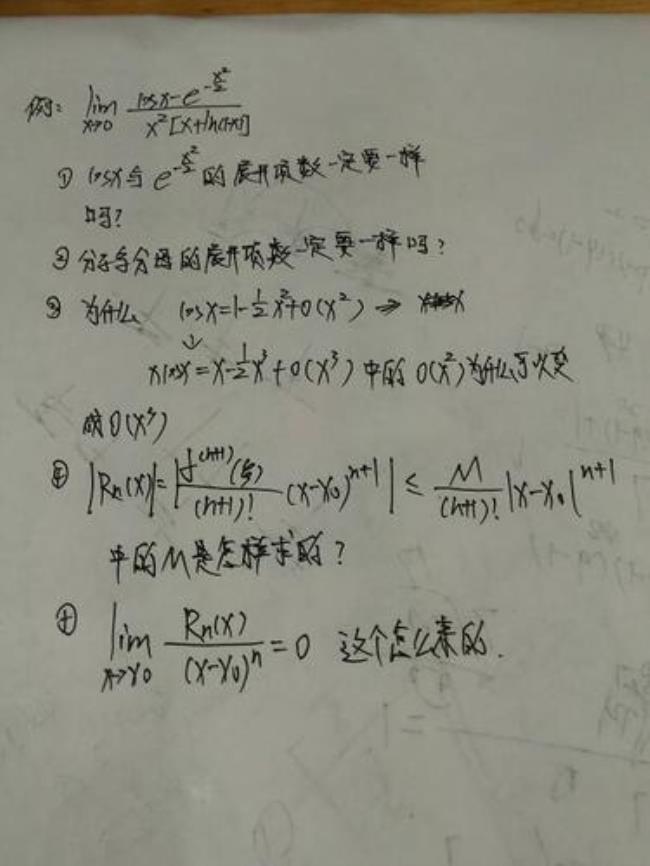 例: lim x→0 (cosx - e^(-x²/2)) / (x²[x+ln(1-x)])
① cosx与 e^(-x²/2) 的展开项数一定要一样
吗?
② 分子与分母的展开项数一定要一样吗?
③ 为什么 cosx=1-½x²+o(x²) ⇒
↓
xcosx = x-½x³+o(x³) 中的 o(x²)为什么可以变
成o(x³)
④ |Rn(x)|=|f^(n+1)(ξ)/(n+1)! (x-x₀)^(n+1)| ≤ M/(n+1)! |x-x₀|^(n+1)
中的M是怎样求的?
lim x→x₀ Rn(x)/(x-x₀)^n = 0 这个怎么来的.